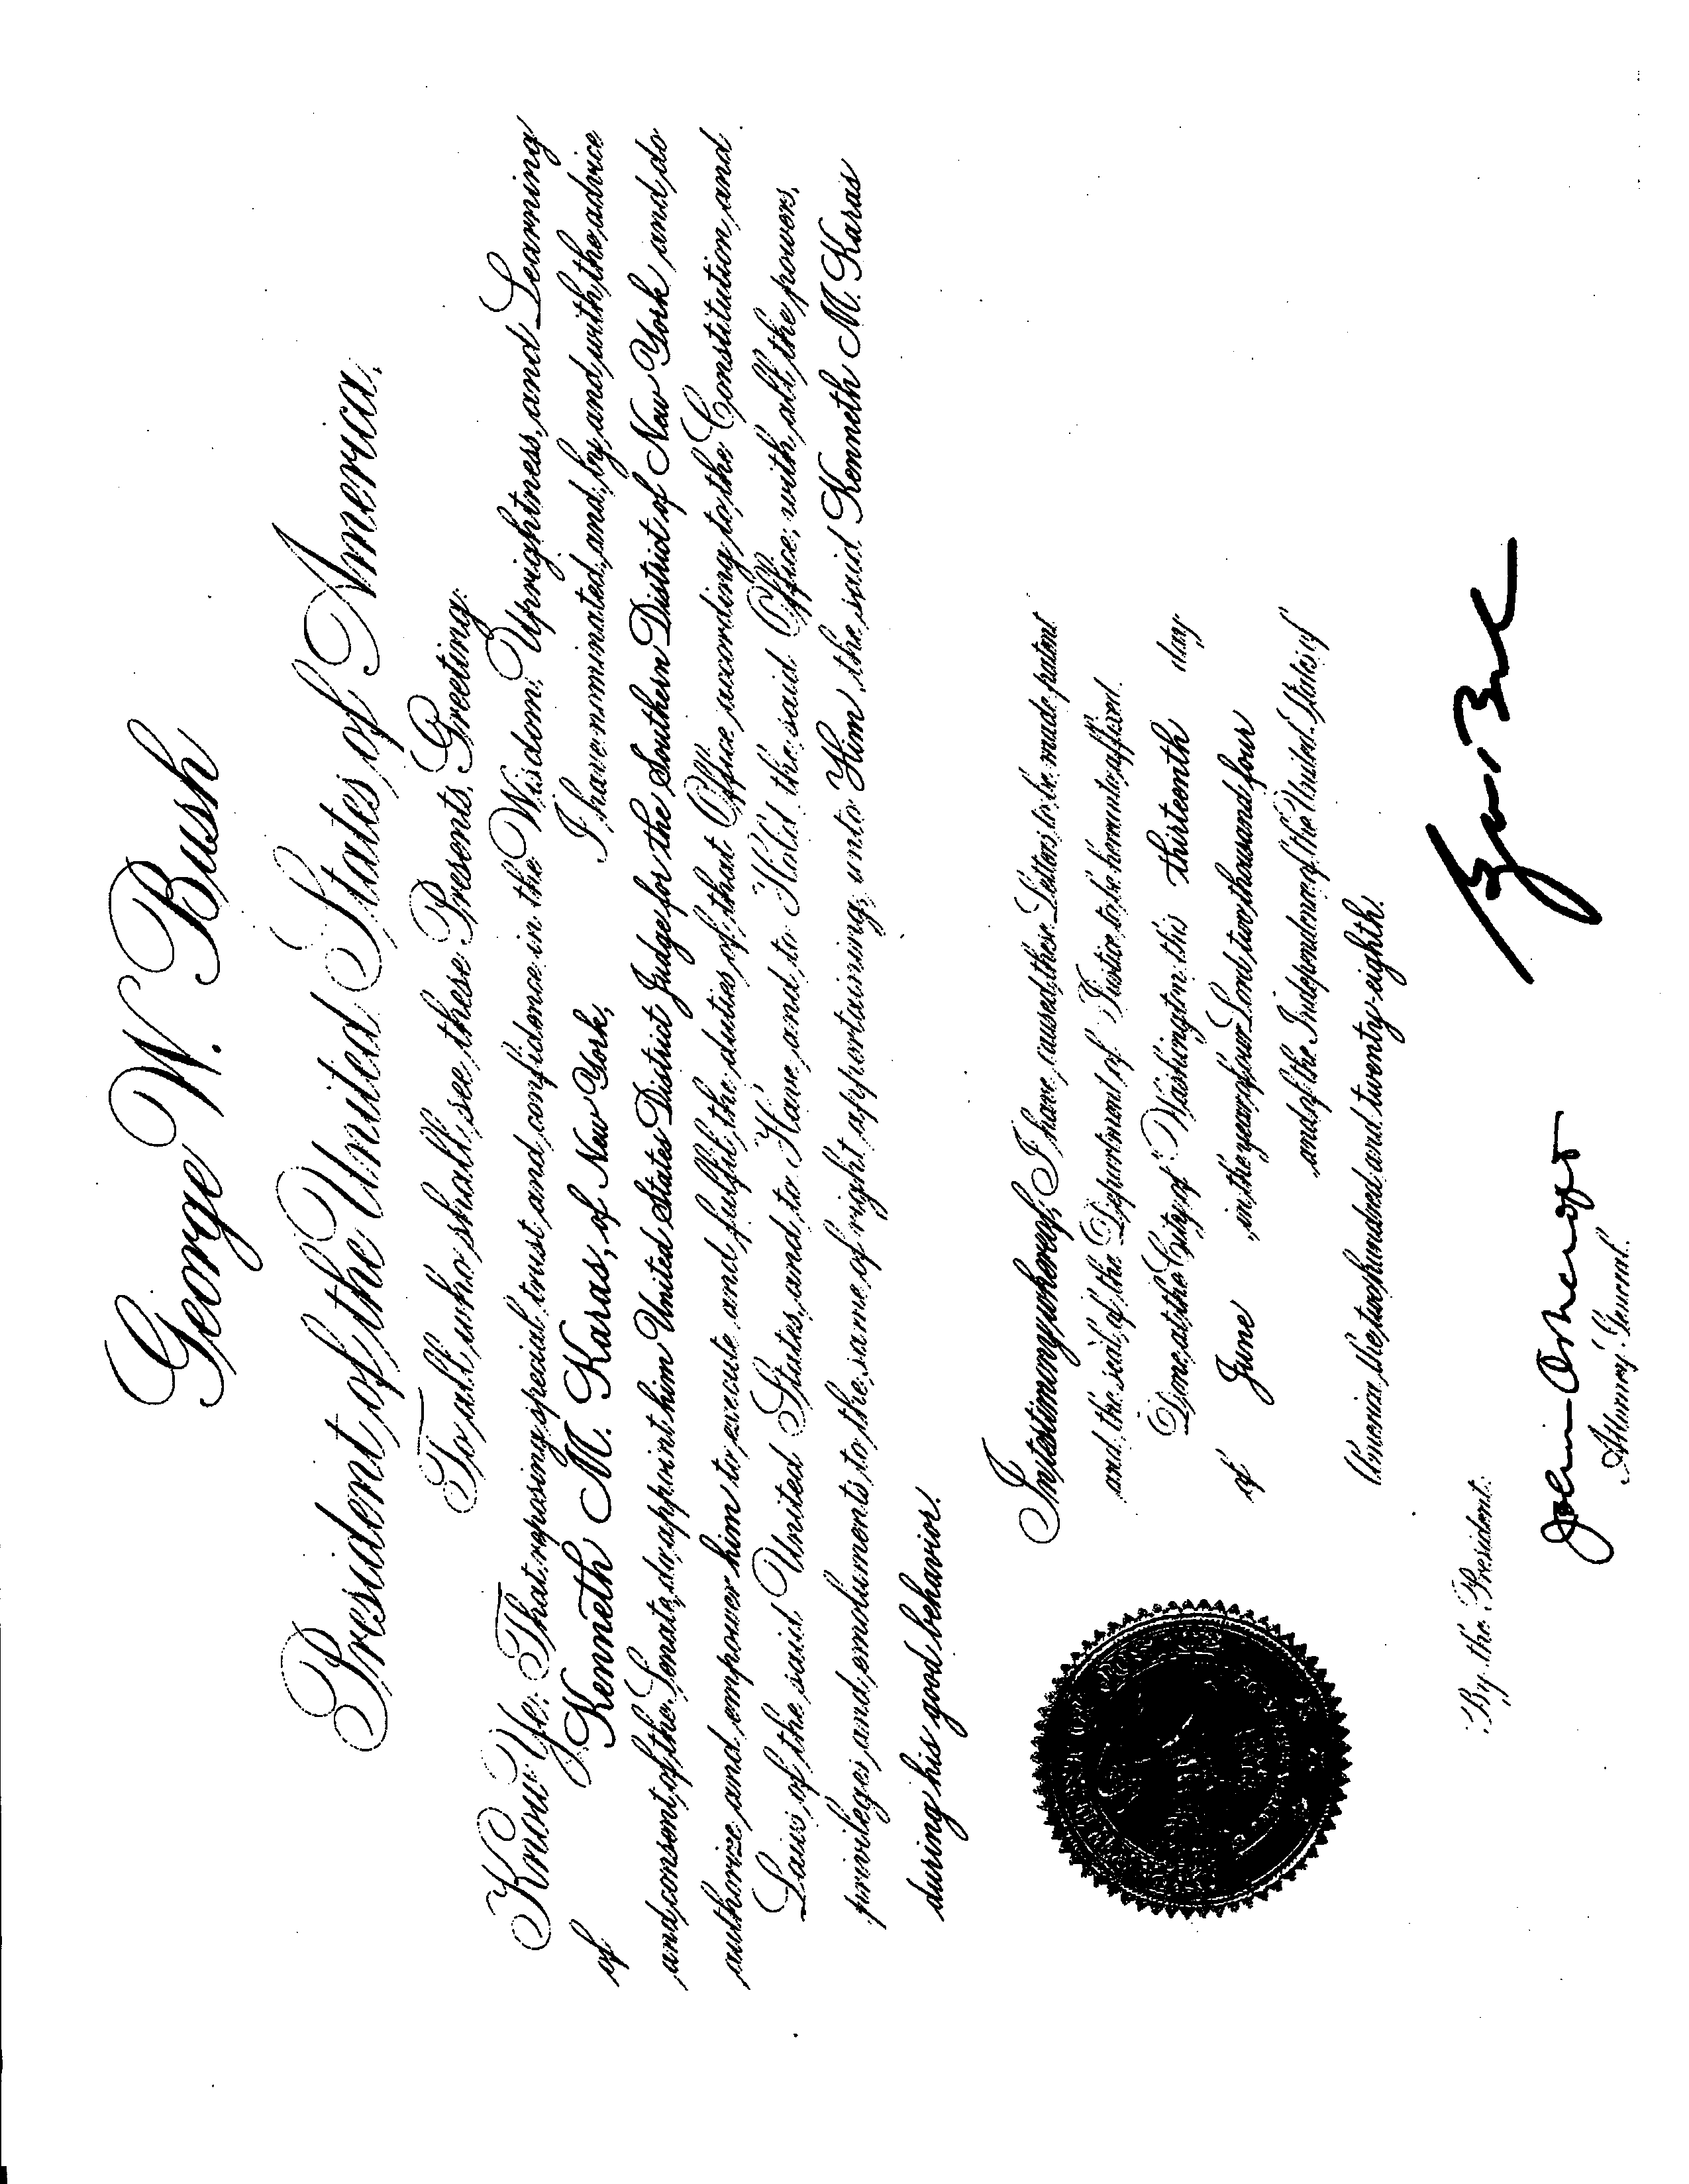 George W. Bush
President of the United States of America.
To all who shall see these Presents, Greeting:
Know Ye: That reposing special trust and confidence in the Wisdom, Uprightness, and Learning
of Kenneth M. Karas, of New York, I have nominated, and, by and with the advice
and consent of the Senate, do appoint him United States District Judge for the Southern District of New York and do
authorize and empower him to execute and fulfil the duties of that Office according to the Constitution and
Laws of the said United States, and to Have and to Hold the said Office, with all the powers,
privileges and emoluments to the same of right appertaining, unto Him the said Kenneth M. Karas
during his good behavior.
In testimony whereof, I have caused these Letters to be made patent
and the seal of the Department of Justice to be hereunto affixed.
Done at the City of Washington this thirteenth day
of June in the year of our Lord two thousand four
and of the Independence of the United States of
America the two hundred and twenty-eighth.
By the President:
John Ashcroft
Attorney General.